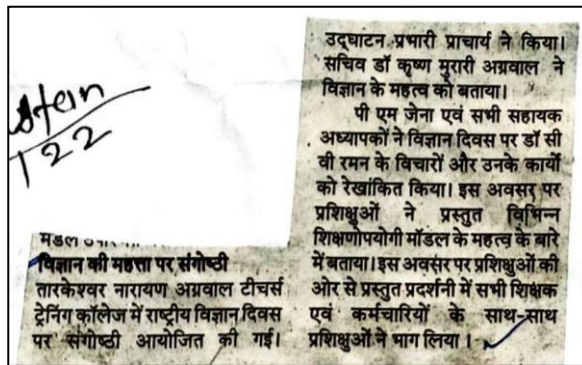 122
मंडल
विज्ञान की महत्ता पर संगोष्ठी
तारकेश्वर नारायण अग्रवाल टीचर्स
ट्रेनिंग कॉलेज में राष्ट्रीय विज्ञान दिवस
पर संगोष्ठी आयोजित की गई।
उद्घाटन प्रभारी प्राचार्य ने किया।
सचिव डॉ कृष्ण मुरारी अग्रवाल ने
विज्ञान के महत्व को बताया।
पी एम जेना एवं सभी सहायक
अध्यापकों ने विज्ञान दिवस पर डॉ सी
वी रमन के विचारों और उनके कार्यों
को रेखांकित किया। इस अवसर पर
प्रशिक्षुओं ने प्रस्तुत विभिन्न
शिक्षणोपयोगी मॉडल के महत्व के बारे
में बताया। इस अवसर पर प्रशिक्षुओं की
ओर से प्रस्तुत प्रदर्शनी में सभी शिक्षक
एवं कर्मचारियों के साथ-साथ
प्रशिक्षुओं ने भाग लिया।